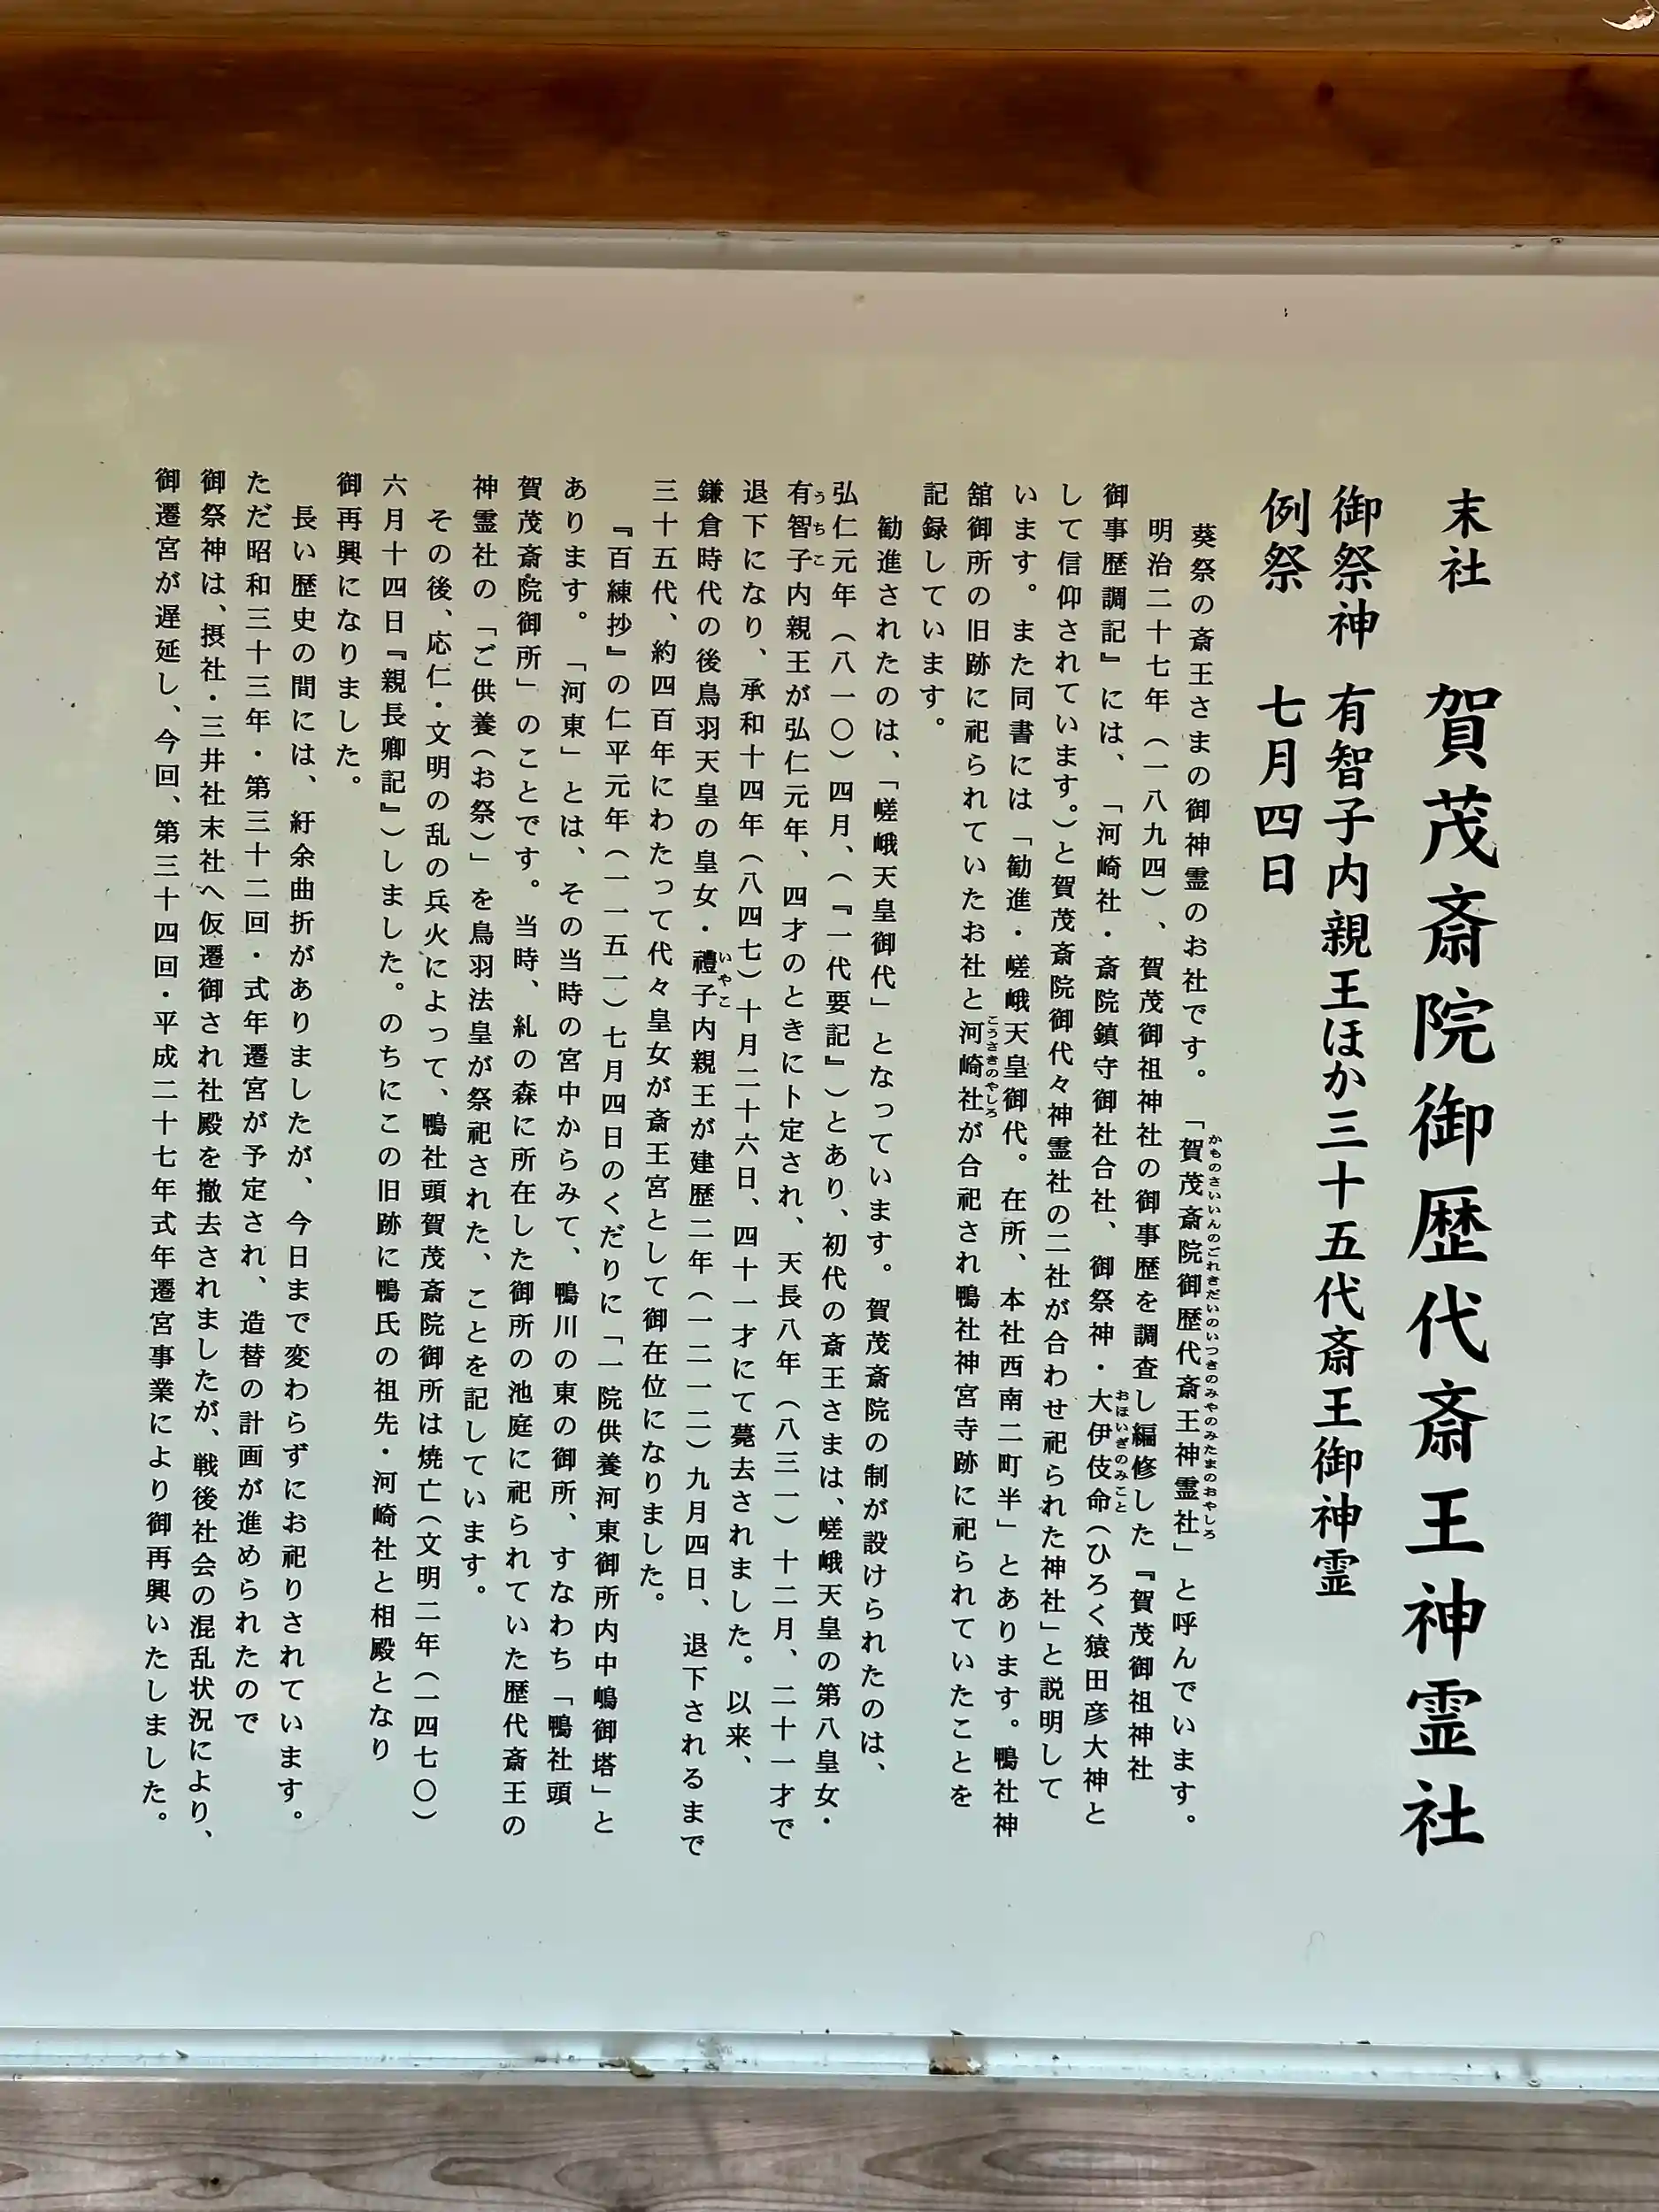 末社　賀茂斎院御歴代斎王神霊社
御祭神　有智子内親王ほか三十五代斎王御神霊
例祭　七月四日
葵祭の斎王さまの御神霊のお社です。「賀茂斎院御歴代斎王神霊社」と呼んでいます。
かものさいいんのごれきだいのいつきのみやのみたまのおやしろ
明治二十七年（一八九四）、賀茂御祖神社の御事歴を調査し編修した『賀茂御祖神社
御事歴調記』には、「河崎社・斎院鎮守御社合社、御祭神・大伊伎命（ひろく猿田彦大神と
おほいぎのみこと
して信仰されています。）と賀茂斎院御代々神霊社の二社が合わせ祀られた神社」と説明して
います。また同書には「勧進・嵯峨天皇御代。在所、本社西南二町半」とあります。鴨社神
舘御所の旧跡に祀られていたお社と河崎社が合祀され鴨社神宮寺跡に祀られていたことを
こうさきのやしろ
記録しています。
勧進されたのは、「嵯峨天皇御代」となっています。賀茂斎院の制が設けられたのは、
弘仁元年（八一〇）四月、（『一代要記』）とあり、初代の斎王さまは、嵯峨天皇の第八皇女・
有智子内親王が弘仁元年、四才のときに卜定され、天長八年（八三一）十二月、二十一才で
うちこ
退下になり、承和十四年（八四七）十月二十六日、四十一才にて薨去されました。以来、
鎌倉時代の後鳥羽天皇の皇女・禮子内親王が建歴二年（一二一二）九月四日、退下されるまで
いやこ
三十五代、約四百年にわたって代々皇女が斎王宮として御在位になりました。
『百練抄』の仁平元年（一一五一）七月四日のくだりに「一院供養河東御所内中嶋御塔」と
あります。「河東」とは、その当時の宮中からみて、鴨川の東の御所、すなわち「鴨社頭
賀茂斎院御所」のことです。当時、糺の森に所在した御所の池庭に祀られていた歴代斎王の
神霊社の「ご供養（お祭）」を鳥羽法皇が祭祀された、ことを記しています。
その後、応仁・文明の乱の兵火によって、鴨社頭賀茂斎院御所は焼亡（文明二年（一四七〇）
六月十四日『親長卿記』）しました。のちにこの旧跡に鴨氏の祖先・河崎社と相殿となり
御再興になりました。
長い歴史の間には、紆余曲折がありましたが、今日まで変わらずにお祀りされています。
ただ昭和三十三年・第三十二回・式年遷宮が予定され、造替の計画が進められたので
御祭神は、摂社・三井社末社へ仮遷御され社殿を撤去されましたが、戦後社会の混乱状況により、
御遷宮が遅延し、今回、第三十四回・平成二十七年式年遷宮事業により御再興いたしました。